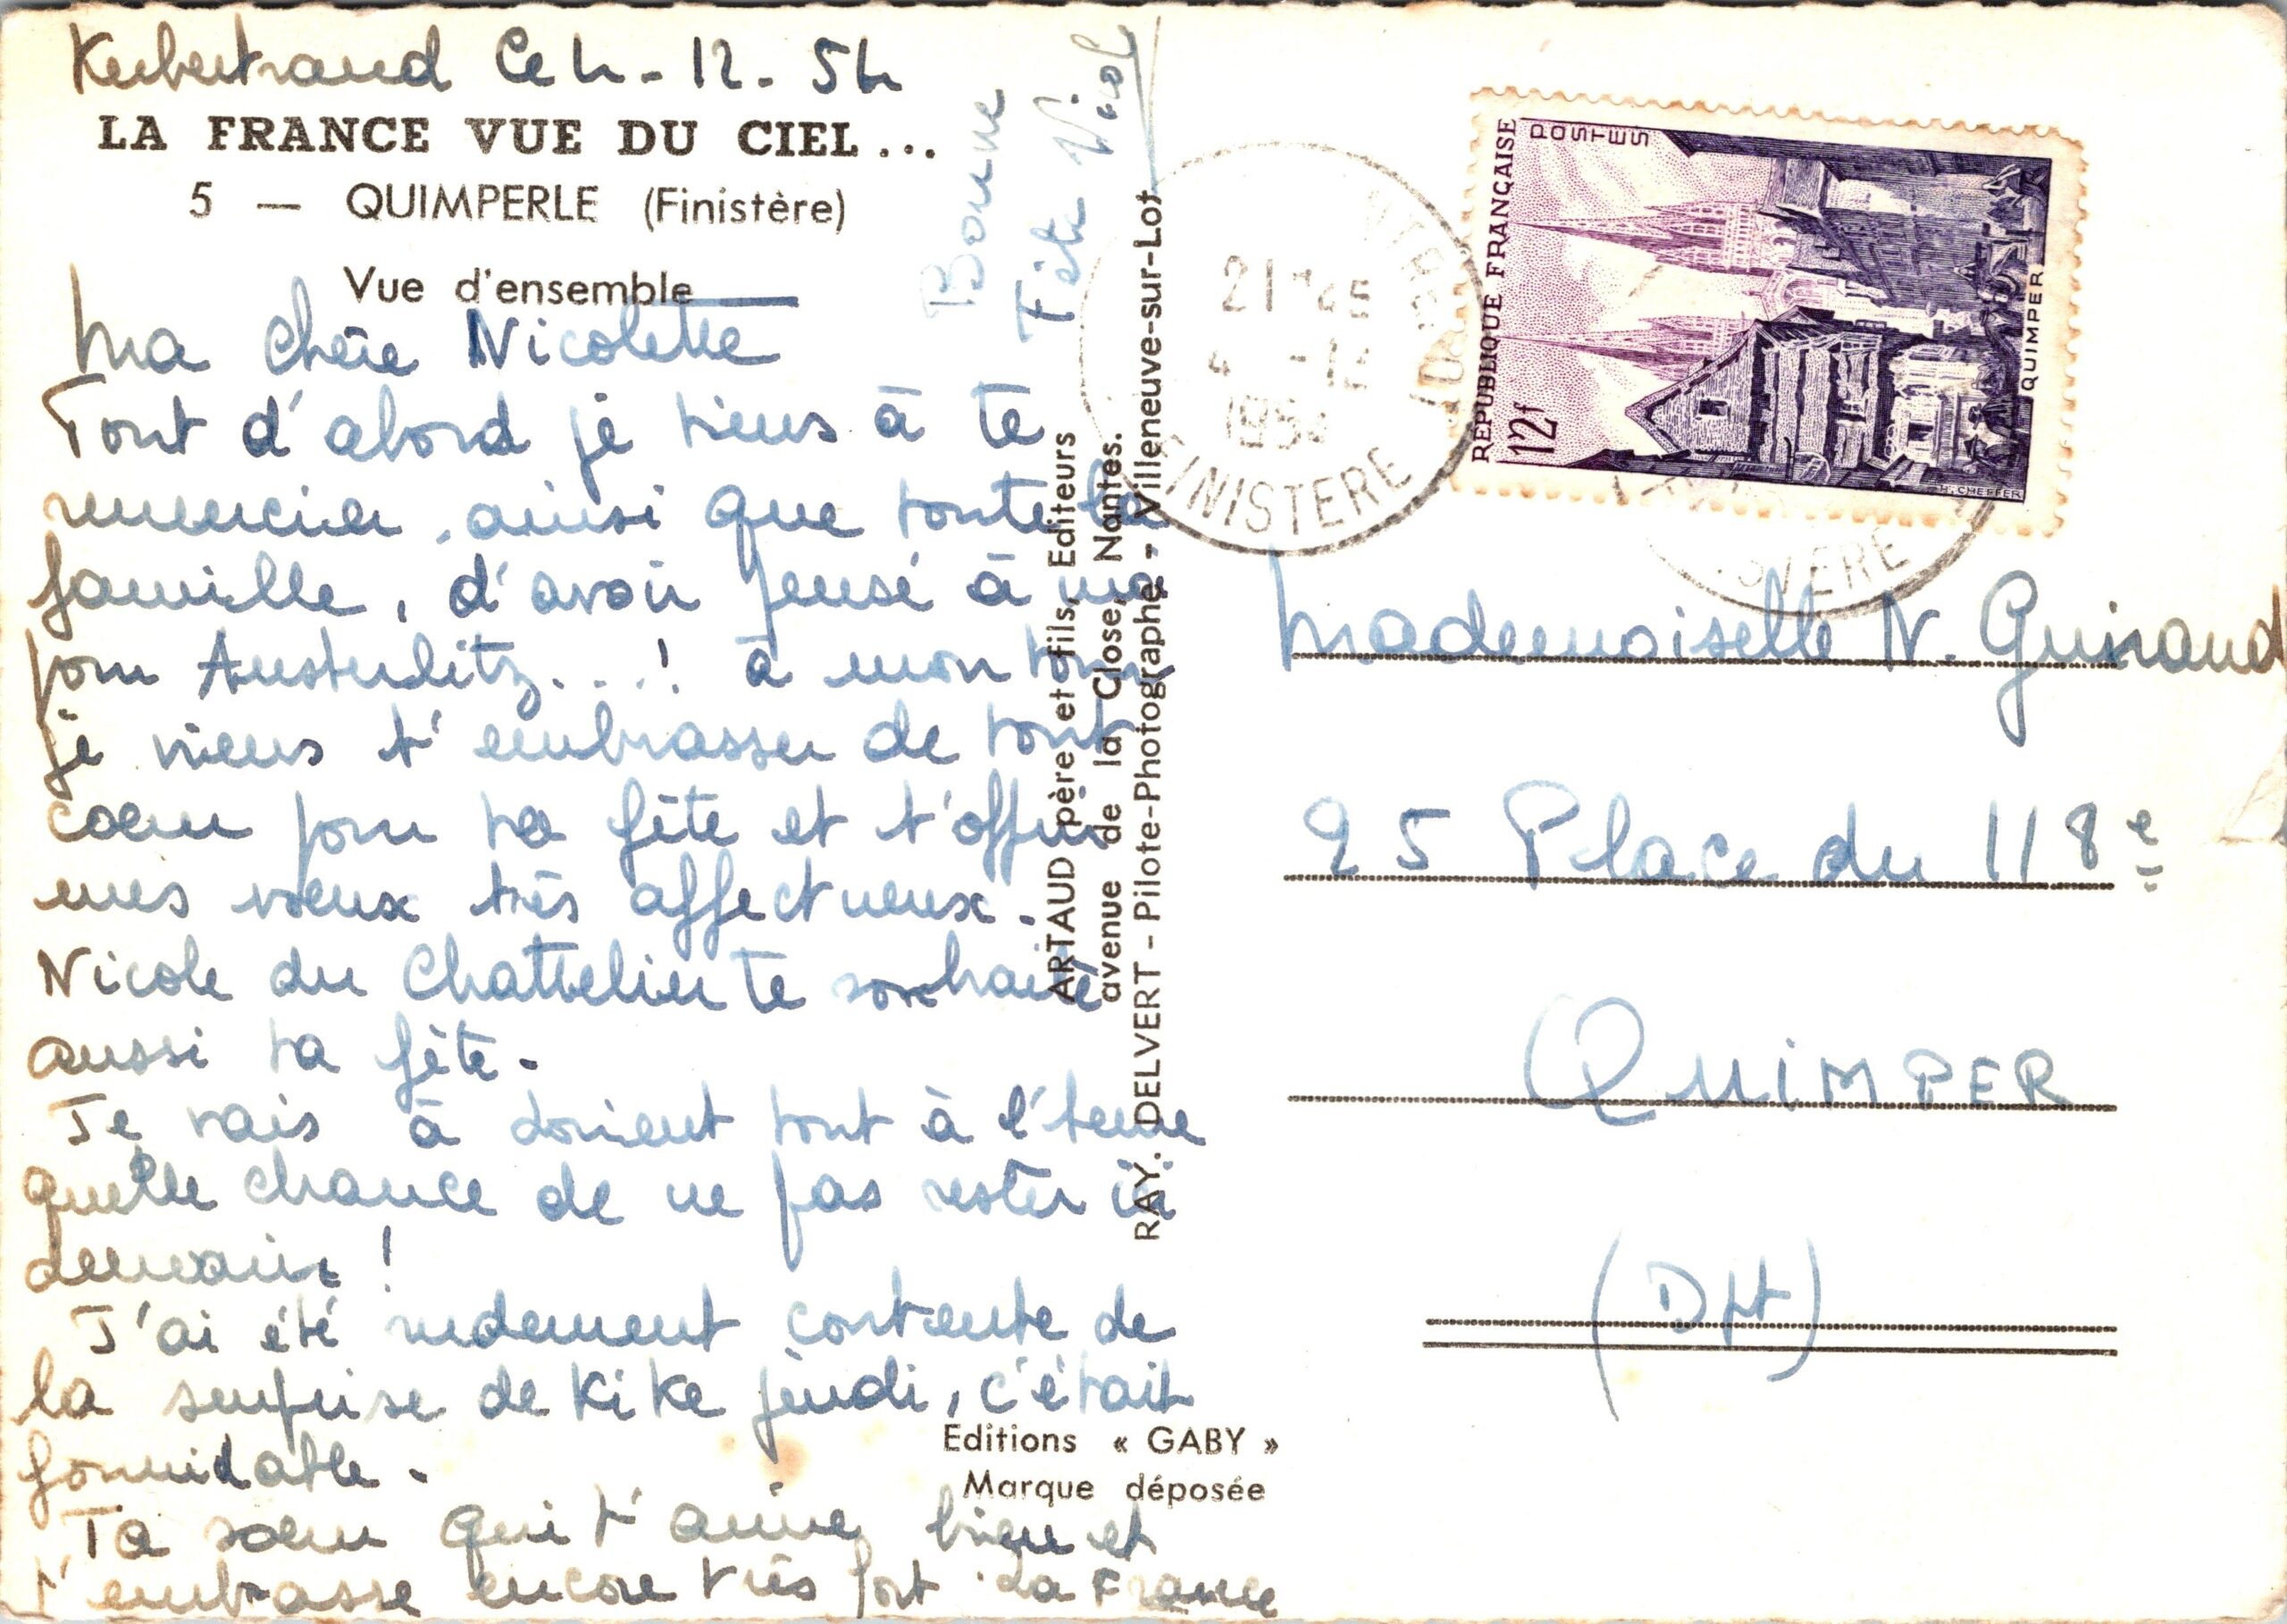 Kerbertrand Ce 4-12-54
LA FRANCE VUE DU CIEL...
5 — QUIMPERLE (Finistère)
Vue d'ensemble
Bonne
Fête Nicol
Ma chère Nicolette
Tout d'abord je tiens à te
remercier, ainsi que toute la
famille, d'avoir pensé à moi
pour Austerlitz...! à mon tour
je viens t'embrasser de tout
coeur pour ta fête et t'offrir
mes voeux très affectueux.
Nicole du Chattelier te souhaite
aussi ta fête.
Je vais à Lorient tout à l'heure
quelle chance de ne pas rester ici
demain !
J'ai été rudement contente de
la surprise de Kike jeudi, c'était
formidable.
Ta soeur qui t'aime bien et
t'embrasse encore très fort. La France
ARTAUD père et fils, Editeurs
avenue de la Close, Nantes.
RAY. DELVERT - Pilote-Photographe - Villeneuve-sur-Lot
Editions « GABY »
Marque déposée
4 -12
FINISTERE
REPUBLIQUE FRANÇAISE
POSTES
12f
QUIMPER
H. CHEFFER
Mademoiselle N. Guiraud
25 Place du 118e
QUIMPER
(Dpt)